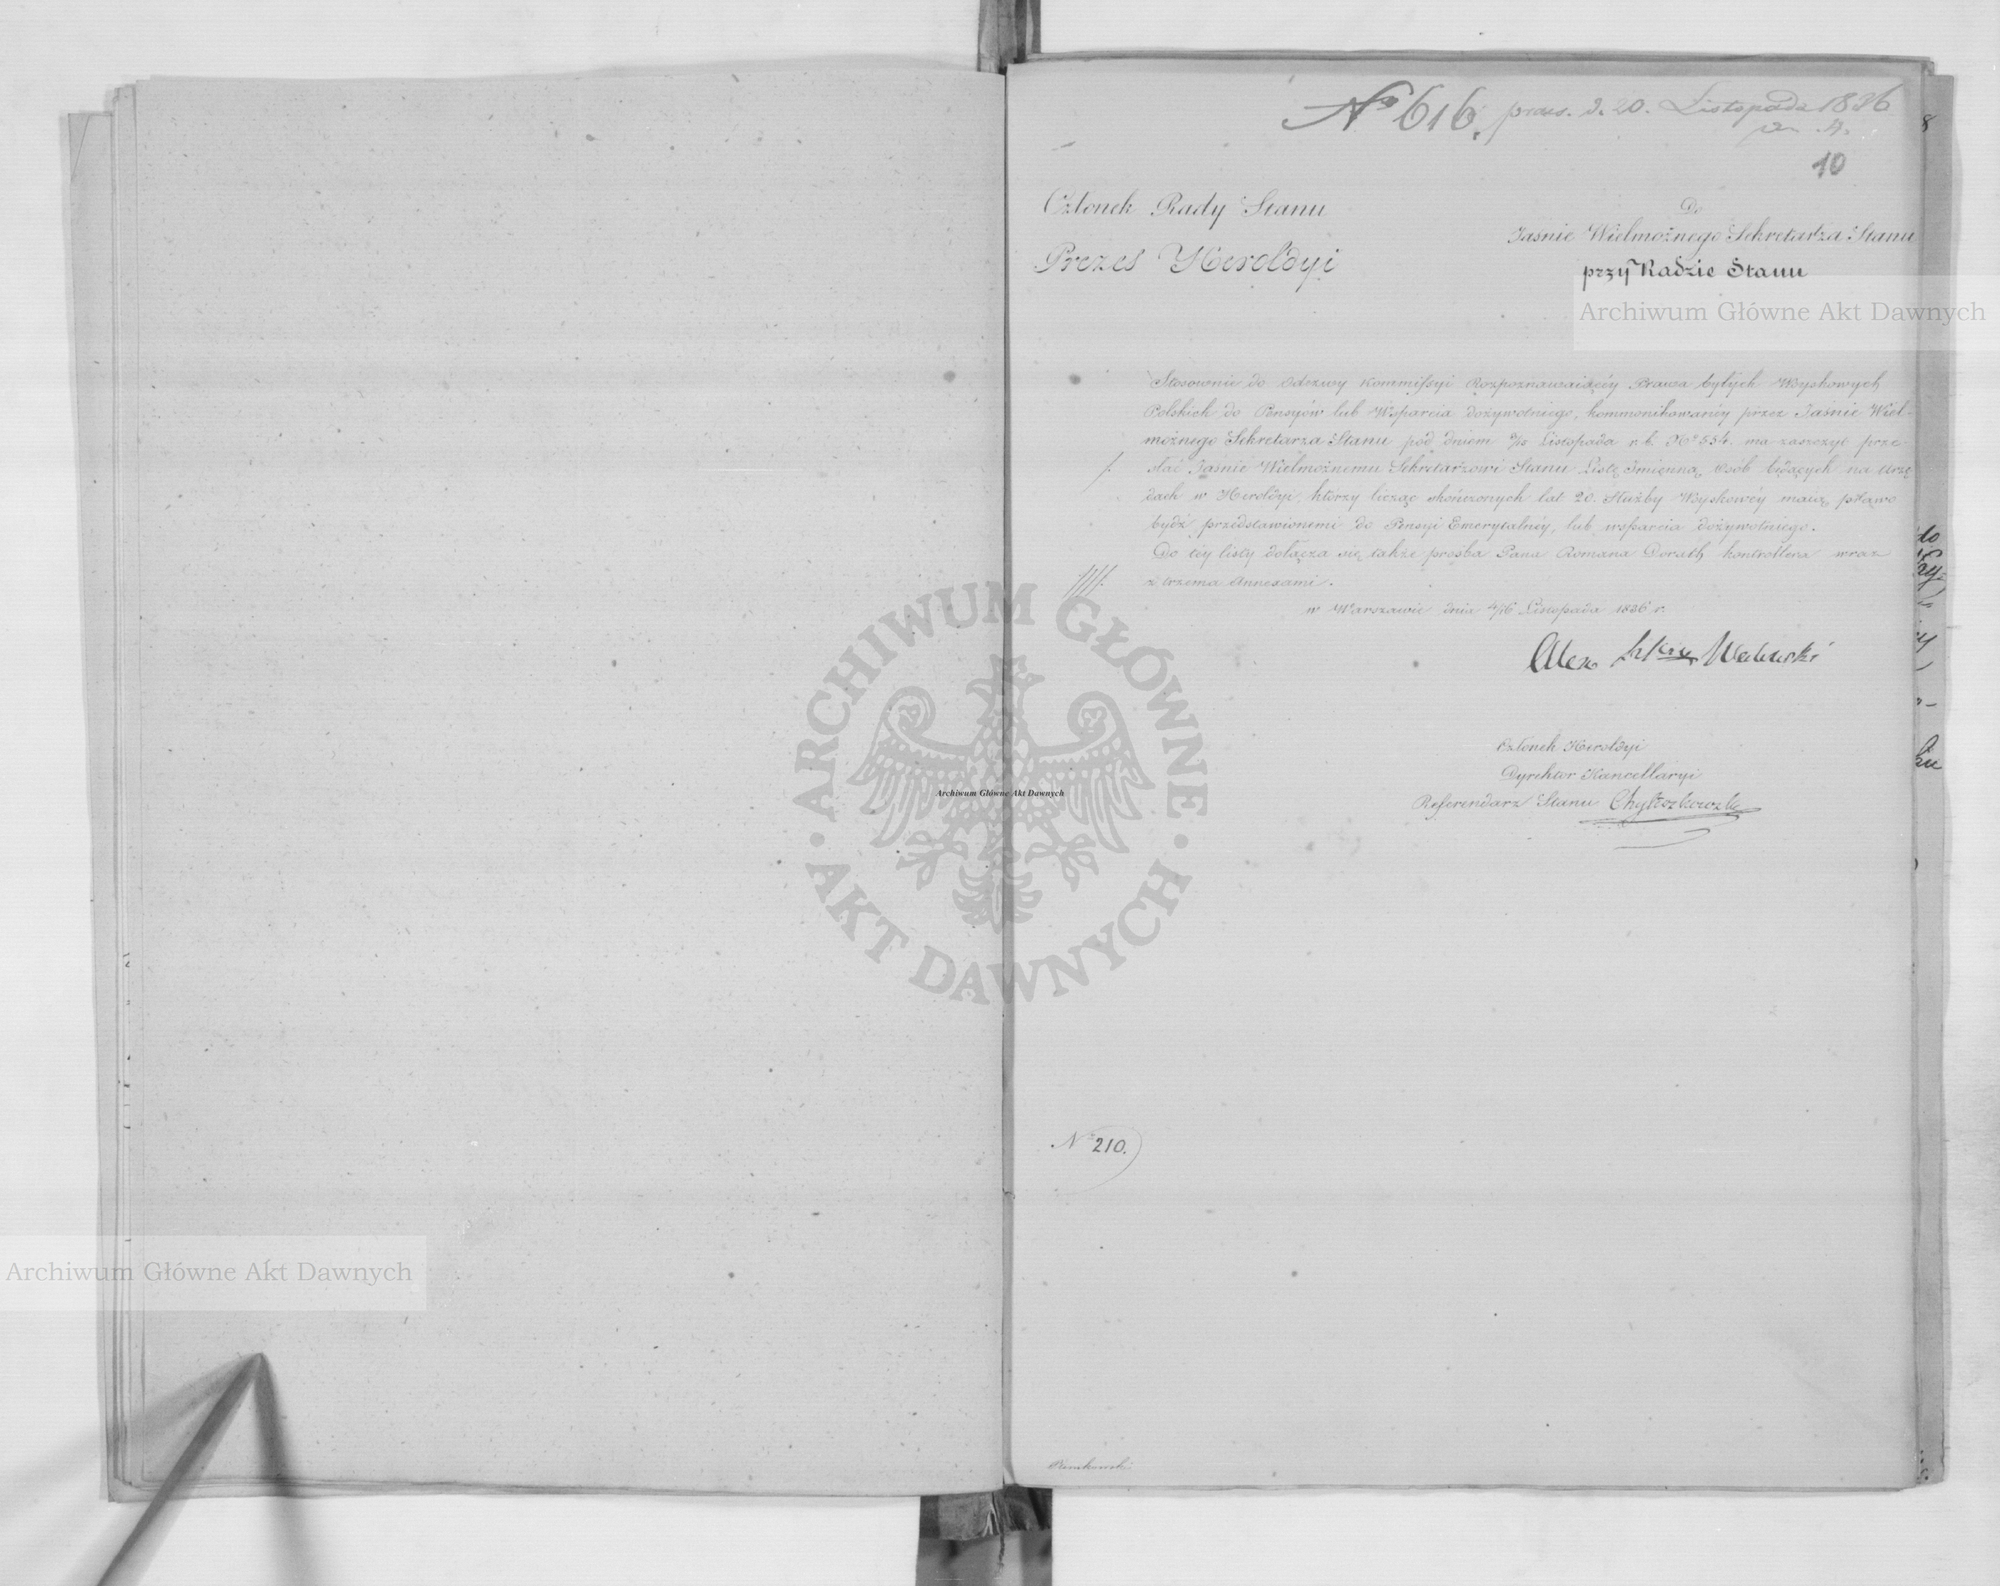 No 616. praes. d. 20. Listopada 1836
10
Członek Rady Stanu
Prezes Heroldyi
Do
Jaśnie Wielmożnego Sekretarza Stanu
przy Radzie Stanu
Archiwum Główne Akt Dawnych
Stosownie do Odezwy Kommissyi Rozpoznawaiącéy Prawa byłych Woyskowych
Polskich do Pensyów lub Wsparcia dożywotniego, kommonikowanéy przez Jaśnie Wiel-
możnego Sekretarza Stanu pod dniem 3/15 Listopada r.b. No 554. ma zaszczyt prze-
słać Jaśnie Wielmożnemu Sekretarzowi Stanu Listę Imienną Osób będących na Urzę
dach w Heroldyi, którzy licząc skończonych lat 20. Służby Woyskowéy maią prawo
bydź przedstawionemi do Pensyi Emerytalnéy, lub wsparcia dożywotniego.
Do téy listy dołącza się także prośba Pana Romana Dorath kontrollera wraz
z trzema Annexami.
w Warszawie dnia 4/16 Listopada 1836 r.
Alex Walewski
Członek Heroldyi
Dyrektor Kancellaryi
Referendarz Stanu
ARCHIWUM GŁÓWNE
AKT DAWNYCH
Archiwum Główne Akt Dawnych
No 210.
Archiwum Główne Akt Dawnych